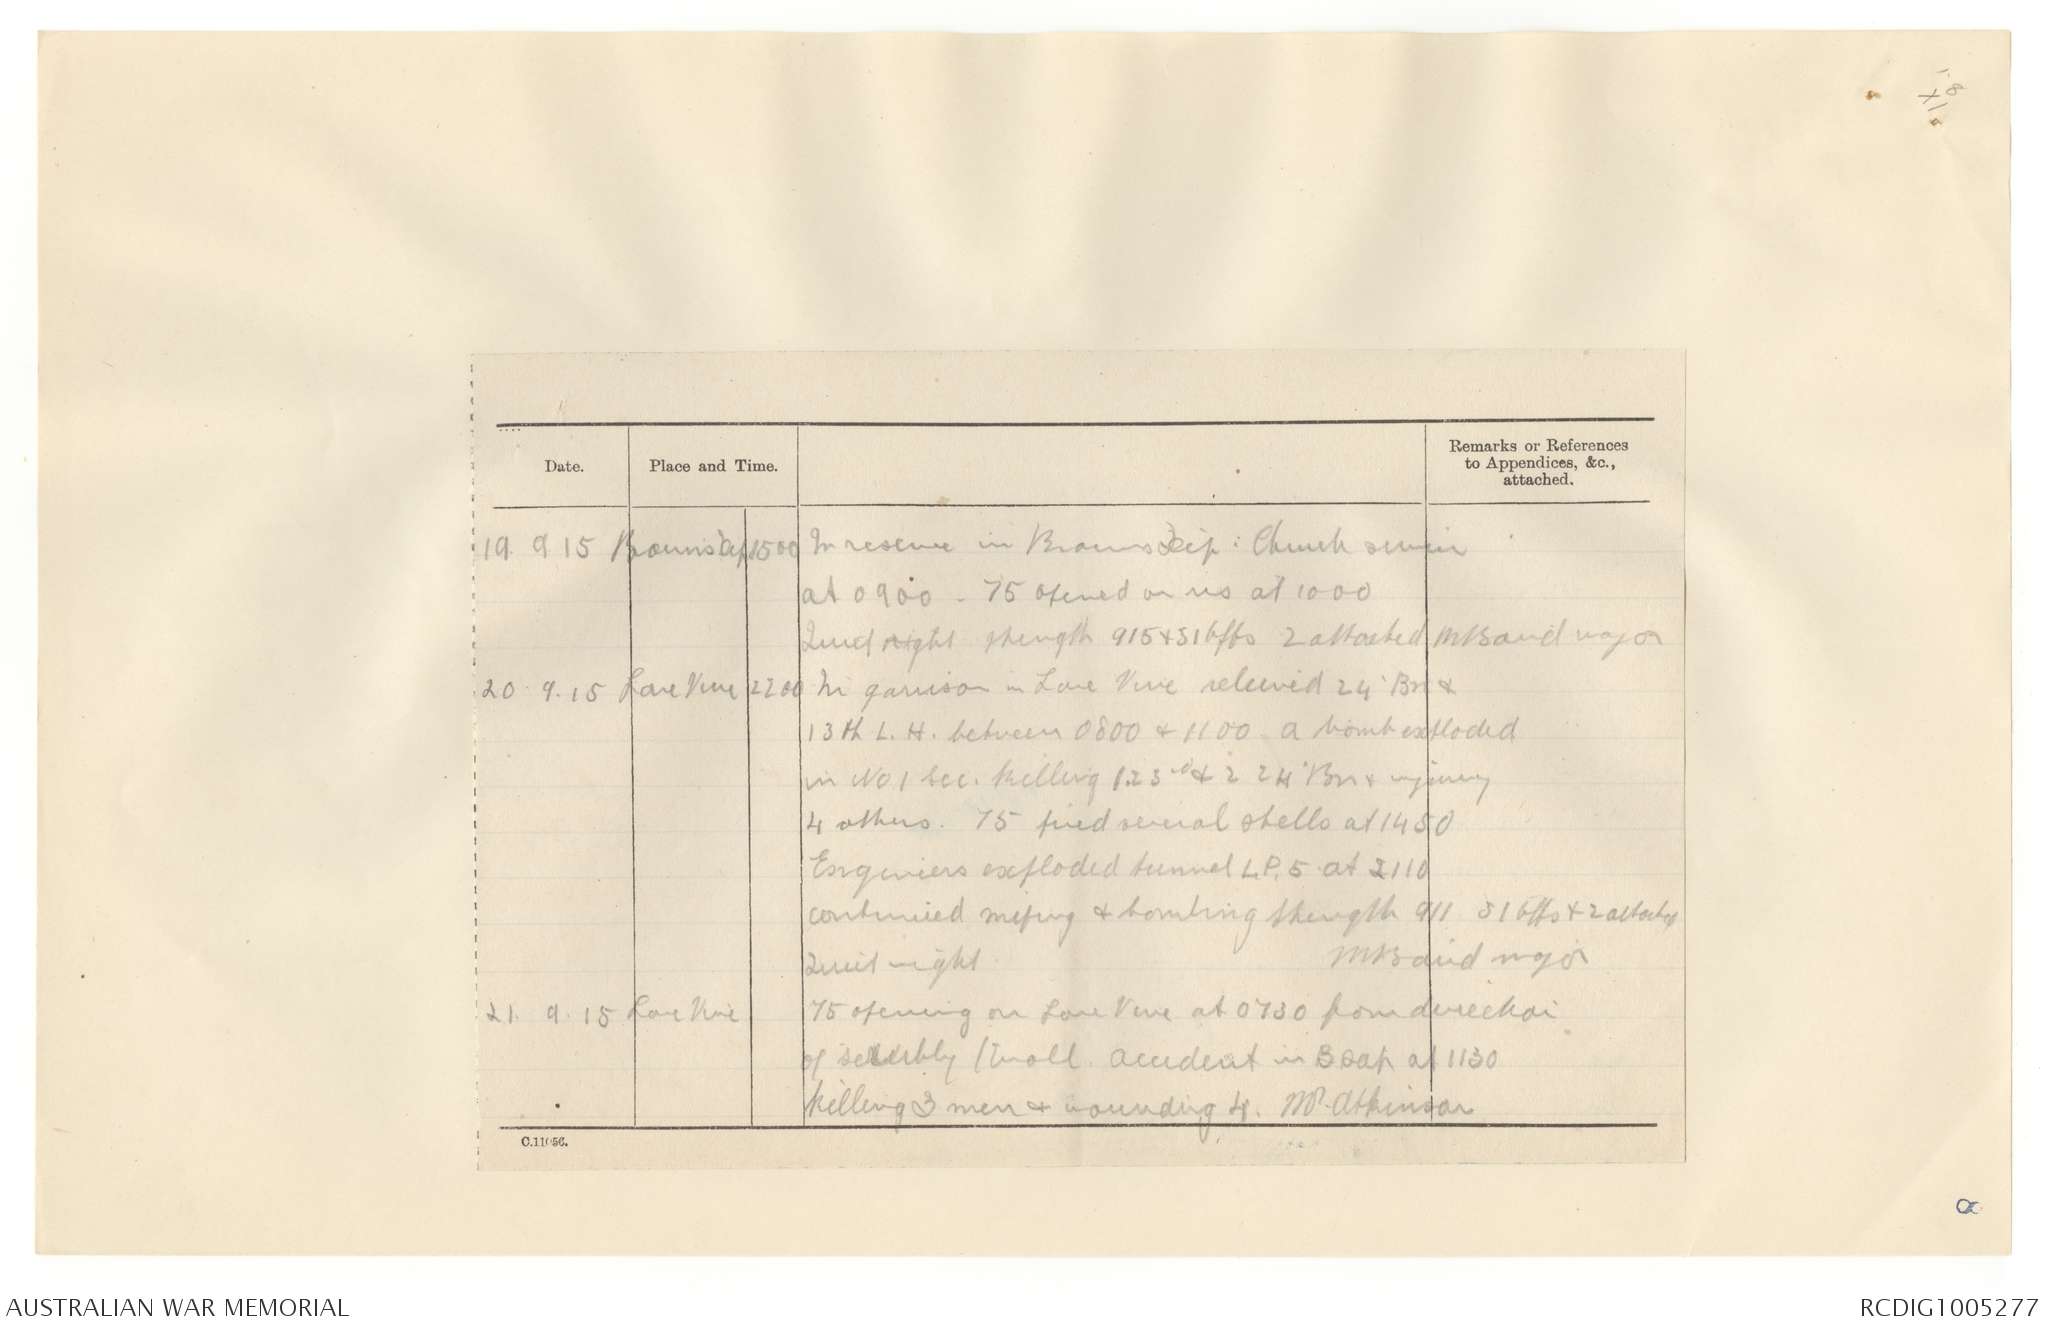 Date. Place and Time. Remarks or References
to Appendices, &c.,
attached.
19. 9 15 Browns Dip 1500 In reserve in Browns Dip : Church service
at 0900 - 75 opened on us at 1000
Quiet night strength 915 & 31 Offs 2 attached M Baird major
20. 9. 15 Lone Pine 2200 In garrison in Lone Pine relieved 24 Bn &
13th L. H. between 0800 & 1100 a bomb exploded
in No 1 Sec. killing 1 23rd & 2 24 Bn & injuring
4 others. 75 fired several shells at 1450
Engineers exploded tunnel L.P. 5 at 2110
continued & bombing strength 911 31 Offs & 2 attached
Quiet night M Baird major
21. 9. 15 Lone Pine 75 opening on Lone Pine at 0730 from direction
of accident in B Sap at 1130
killing 3 men & wounding 4. Atkinson
C.11056.
AUSTRALIAN WAR MEMORIAL
RCDIG1005277